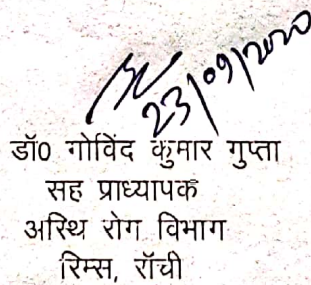 23/09/2020
डॉ0 गोविंद कुमार गुप्ता
सह प्राध्यापक
अस्थि रोग विभाग
रिम्स, रॉची